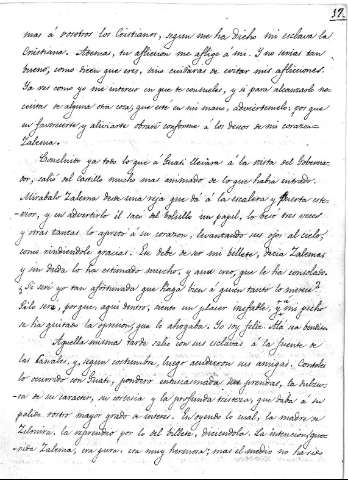 37.
mas á vosotros los Cristianos, segun me ha dicho mi esclava la
Cristiana. Ademas, tu afliccion me aflige á mi. Y no serias tan
bueno, como dicen que eres, sino cuidaras de evitar mis aflicciones.
Ya ves como yo me intereso en que te consueles, y si para alcanzarlo ne-
cesitas de alguna otra cosa, que esté en mi mano, adviértemelo; por que
en favorecerte y aliviarte obraré conforme á los deseos de mi corazon=
Zalema.
Concluido ya todo lo que á Guati llevara á la vista del Goberna-
dor, salió del castillo mucho mas animado de lo que habia entrado.
Mirabalo Zalema desde una reja que dá á la escalera y puerta este-
rior, y en advertirlo él sacó del bolsillo un papel, lo besó tres veces
y otras tantas lo apretó á su corazon, levantando sus ojos al cielo,
como rindiendole gracias. Ese debe de ser mi billete, decia Zalema
y sin duda lo ha estimado mucho, y aun creo, que le ha consolado.
¿Si seré yo tan afortunada que haga bien á quien tanto lo merece?
Sí lo seré, porque, aqui dentro, siento un placer inefable, y á mi pecho
se ha quitado la opresion, que lo ahogaba. Yo soy feliz. Alá sea bendito
Aquella misma tarde salió con sus esclavas á la fuente de
los Canales, y, segun costumbre, luego acudieron sus amigas. Contoles
lo ocurrido con Guati, ponderó entusiasmada sus prendas, la dulzu-
ra de su caracter, su cortesia y la profunda tristeza, que daba á su
palido rostro mayor grado de interes. En oyendo lo cual, la madre de
Zelmira, la reprendió por lo del billete, diciendola. La intencion, que-
rida Zalema, era pura, era muy hermosa; mas el medio no ha sido